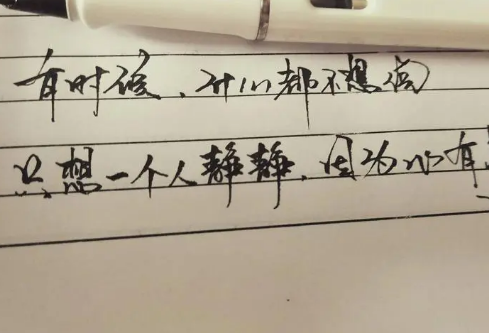 有时候、什么都不想说
只想一个人静静、因为心有